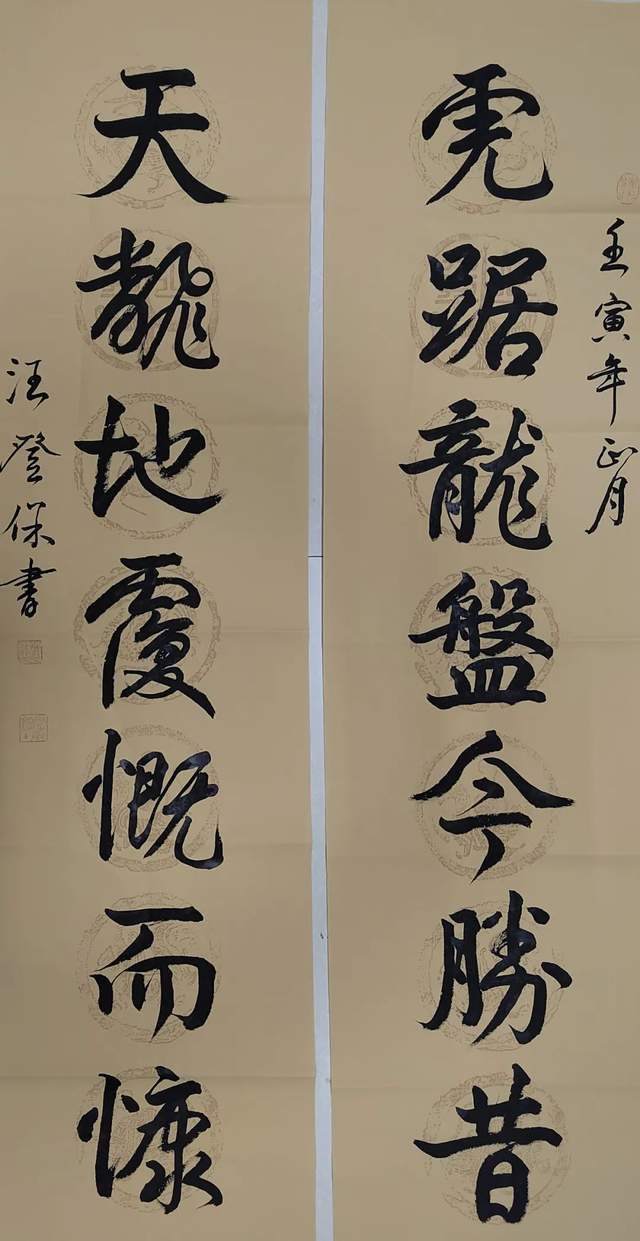 壬寅年正月
虎踞龍盤今勝昔
天翻地覆慨而慷
汪登保書